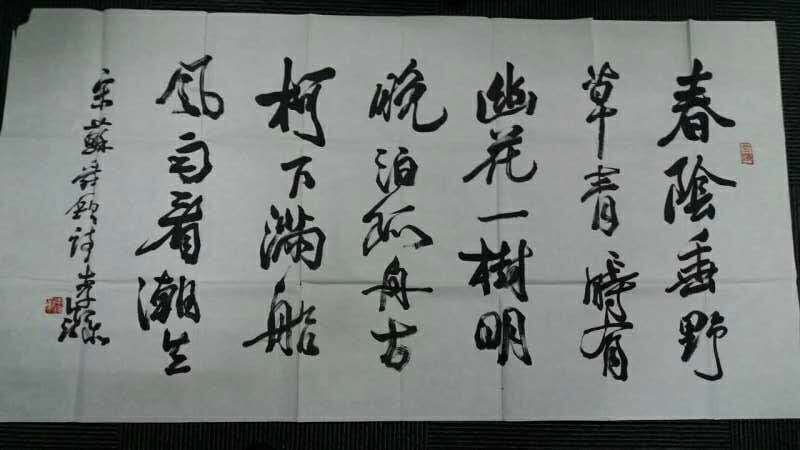 春陰垂野
草青時有
幽花一樹明
晚泊孤舟古
柯下滿船
風雨看潮生
宋蘇舜欽詩李